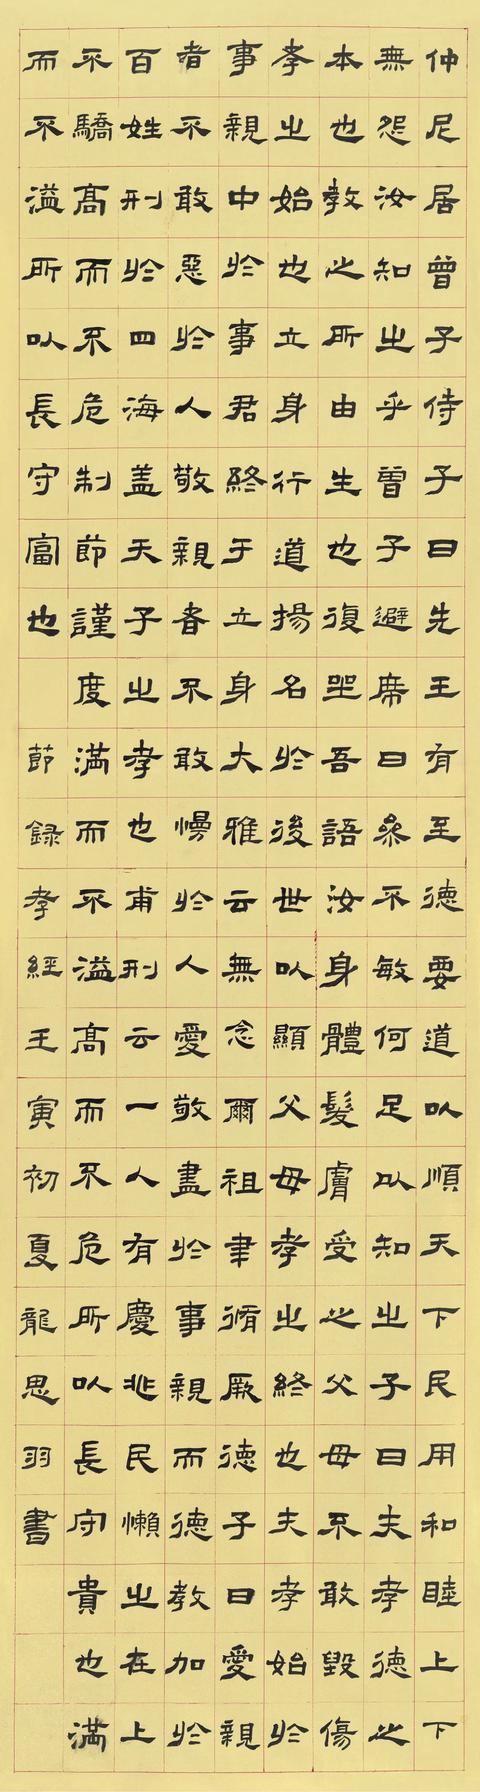 仲尼居曾子侍子曰先王有至德要道以順天下民用和睦上下
無怨汝知之乎曾子避席曰參不敏何足以知之子曰夫孝德之
本也教之所由生也復坐吾語汝身體髮膚受之父母不敢毀傷
孝之始也立身行道揚名於後世以顯父母孝之終也夫孝始於
事親中於事君終于立身大雅云無念爾祖聿脩厥德子曰愛親
者不敢惡於人敬親者不敢慢於人愛敬盡於事親而德教加於
百姓刑於四海盖天子之孝也甫刑云一人有慶兆民懶之在上
不驕高而不危制節謹度滿而不溢高而不危所以長守貴也滿
而不溢所以長守富也 節録孝經壬寅初夏龍思羽書